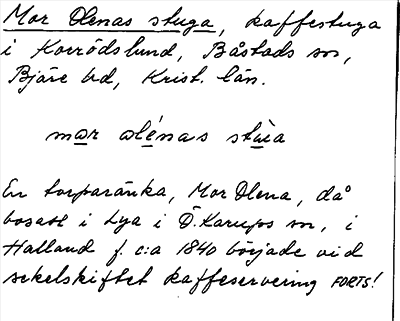 Mor Olenas stuga, kaffestuga
i Korrödslund, Båstads sn,
Bjäre hd, Krist. län.
mar olénas stùa
En torparänka, Mor Olena, då
bosatt i Lya i Ö. Karups sn, i
Halland f. c:a 1840 började vid
sekelskiftet kaffeservering FORTS!